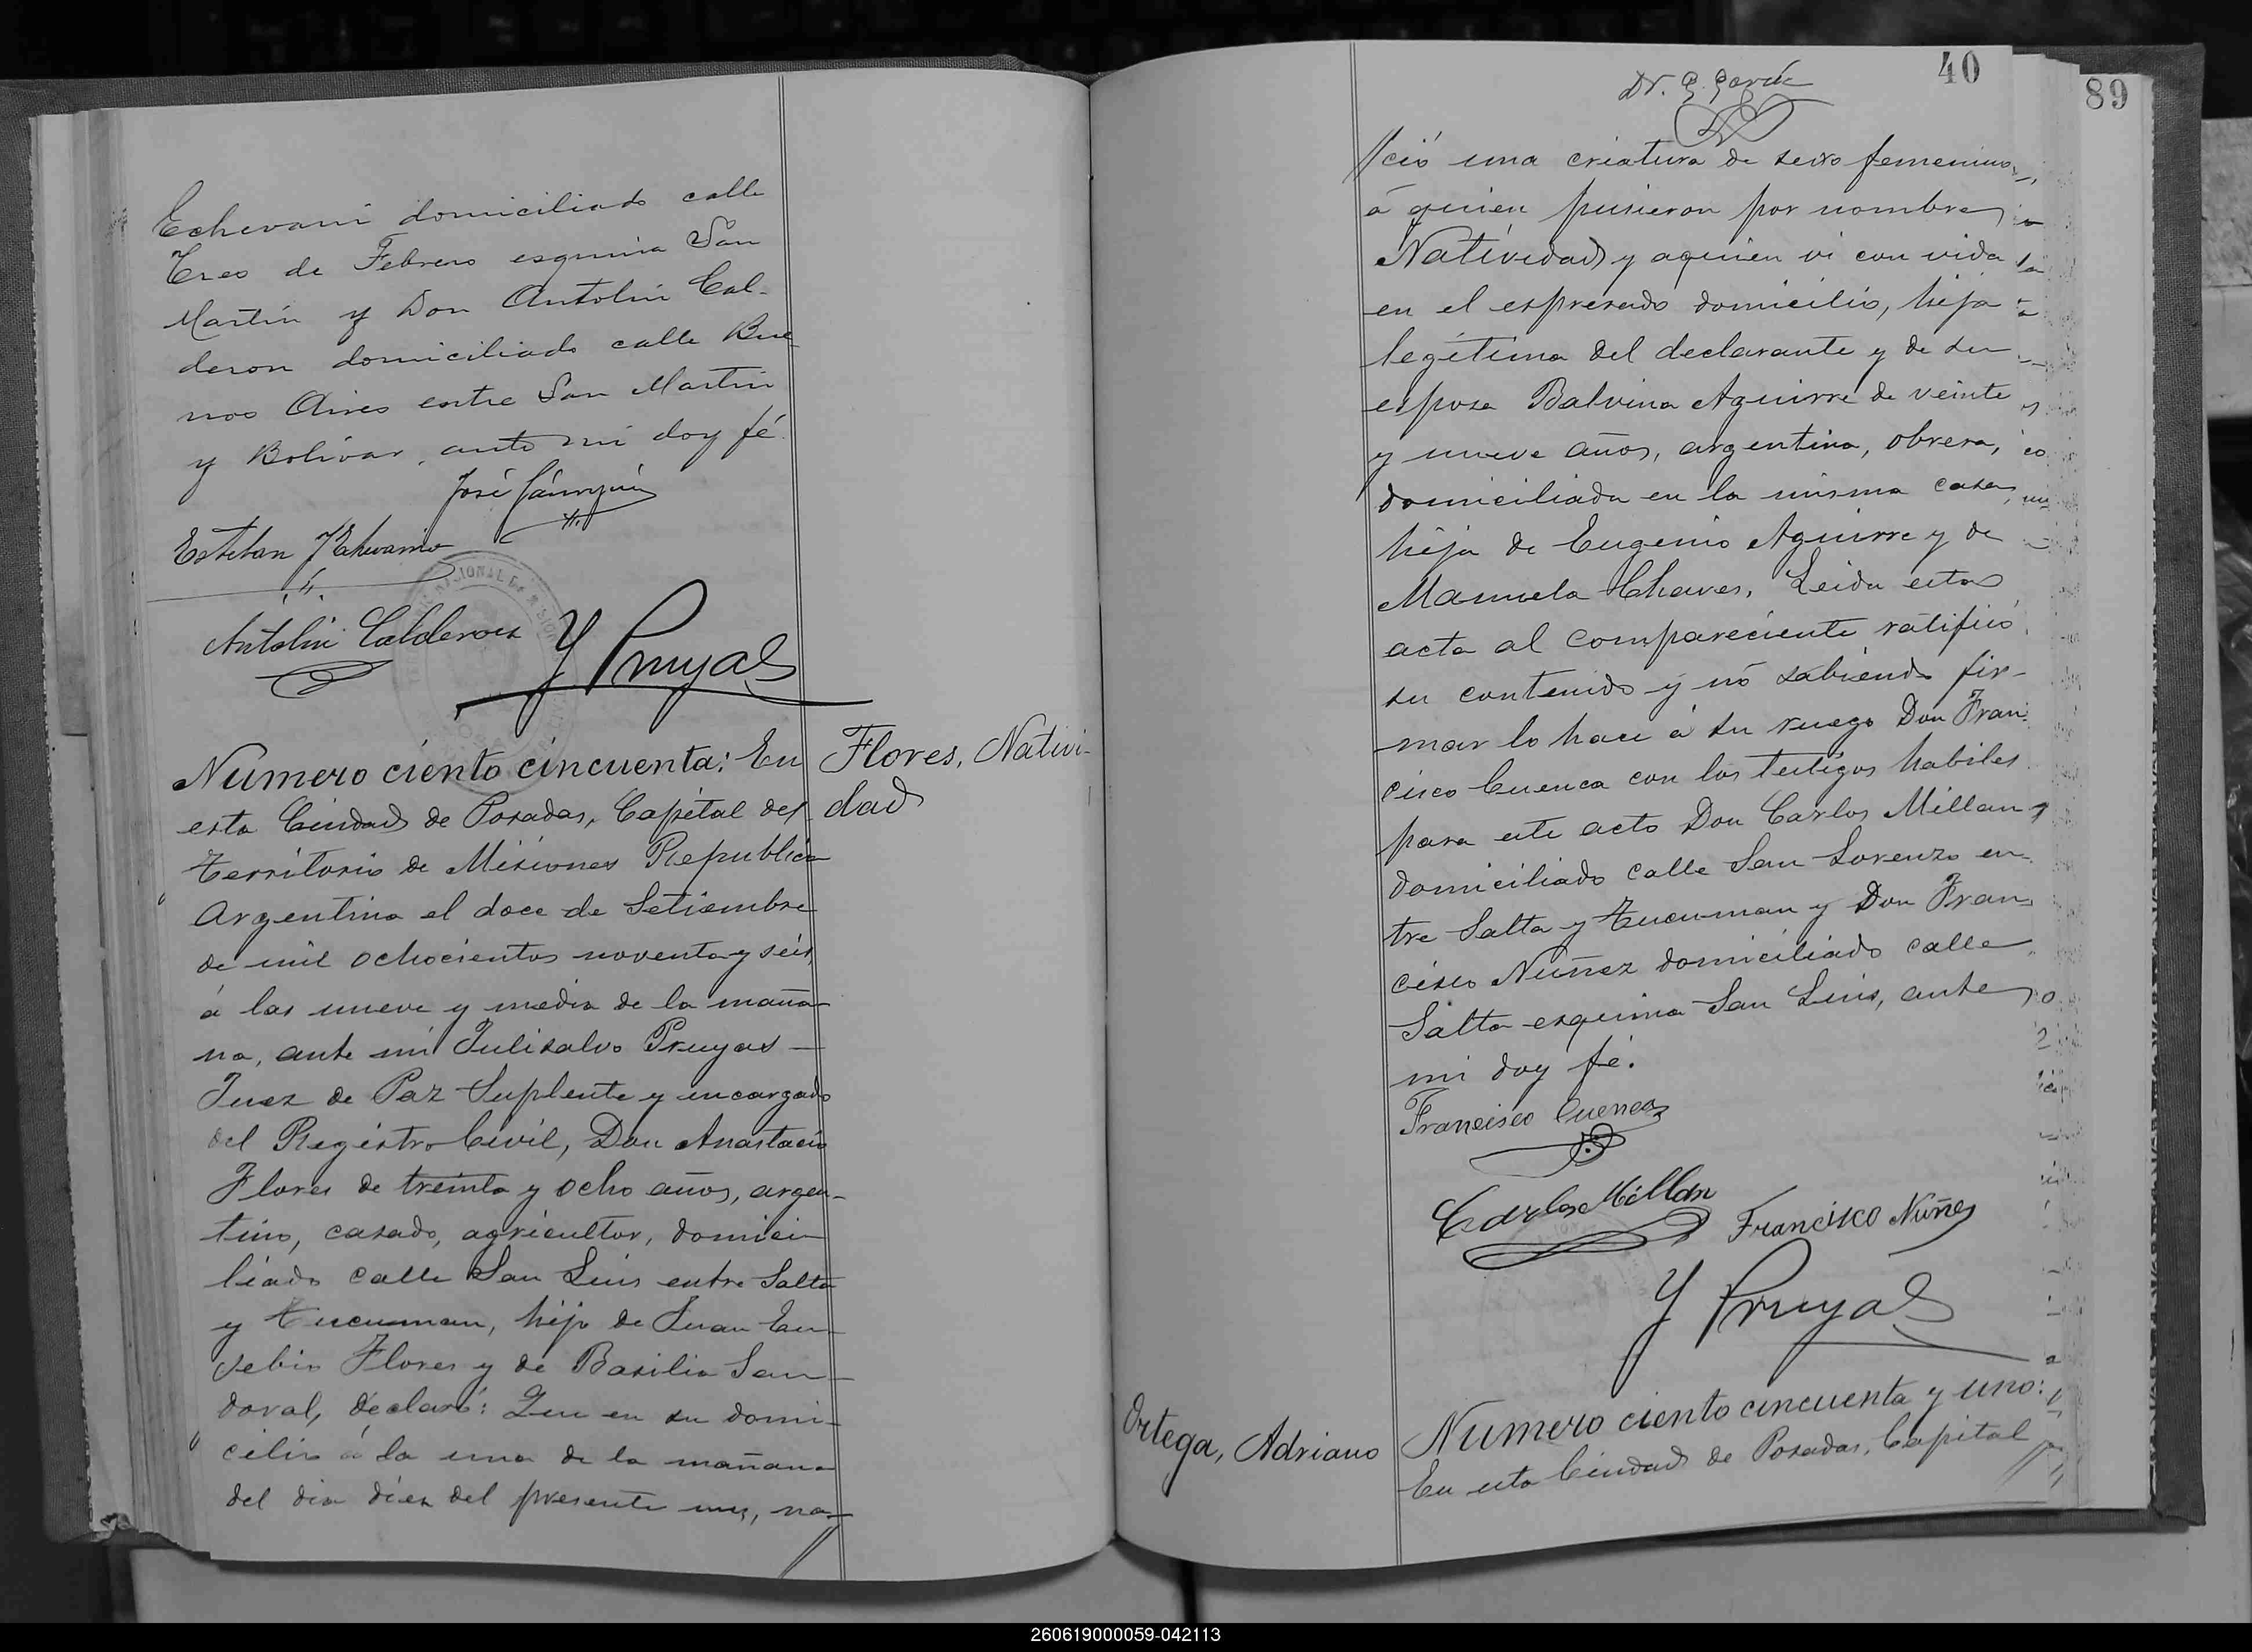 Echevarri domiciliado calle
Tres de Febrero esquina San
Martin y Don Antolin Cal-
deron domiciliado calle Bue
nos Aires entre San Martin
y Bolivar, ante mi doy fé.
José
Esteban Echevarria
Antolin Calderon
Y Pruyas
Numero ciento cincuenta: En
Flores, Nativi-
dad
esta Ciudad de Posadas, Capital del
Territorio de Misiones Republica
Argentina el doce de Setiembre
de mil ochocientos noventa y seis,
á las nueve y media de la maña-
na, ante mi Julisalvo Pruyas
Juez de Paz Suplente y encargado
del Registro Civil, Don Anastacio
Flores de treinta y ocho años, argen-
tino, casado, agricultor, domici-
liado calle San Luis entre Salta
y Tucuman, hijo de Juan Eu-
sebio Flores y de Basilia San-
doval, declaró: Que en su domi-
cilio á la una de la mañana
del dia diez del presente mes, na-
40
89
Dr. G. García
ció una criatura de sexo femenino,
á quien pusieron por nombre
Natividad y aquien vi con vida
en el espresado domicilio, hija
legitima del declarante y de su
esposa Balvina Aguirre de veinte
y nueve años, argentina, obrera,
domiciliada en la misma casa,
hija de Eugenio Aguirre y de
Manuela Chaves. Leida esta
acta al compareciente ratificó
su contenido y nó sabiendo fir-
mar lo hace á su ruego Don Fran
cisco Cuenca con los testigos habiles
para este acto Don Carlos Millan
domiciliado calle San Lorenzo en-
tre Salta y Tucuman y Don Fran
cisco Nuñez domiciliado calle
Salta esquina San Luis, ante
mi doy fé.
Francisco Cuenca
Carlos Millan
Francisco Nuñez
Y Pruyas
Ortega, Adriano
Numero ciento cincuenta y uno:
En esta Ciudad de Posadas, Capital
260619000059-042113